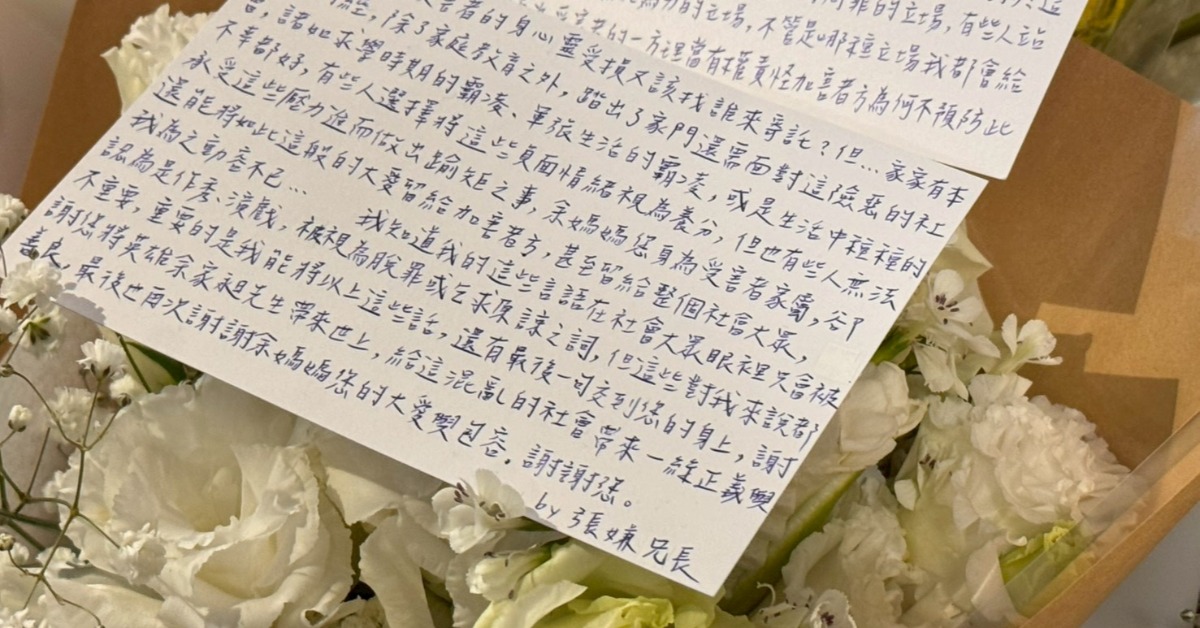 罪的立場，有些人站
力的立場，不管是哪種立場我都會給
者的一方理當有權責怪加害者方為何不預防此
害者的身心靈受損又該找誰來寄託？但…家家有本
經，除了家庭教育之外，踏出了家門還需面對這險惡的社
會，諸如求學時期的霸凌、軍旅生活的霸凌，或是生活中種種的
不幸都好，有些人選擇將這些負面情緒視為養分，但也有些人無法
承受這些壓力進而做出踰矩之事，余媽媽您身為受害者家屬，卻
還能將如此這般的大愛留給加害者方，甚至留給整個社會大眾，
我為之動容不已… 我知道我的這些言語在社會大眾眼裡只會被
認為是作秀、演戲，被視為脫罪或乞求原諒之詞，但這些對我來說都
不重要，重要的是我能將以上這些話，還有最後一句交到您的身上，謝
謝您將英雄余家昶先生帶來世上，給這混亂的社會帶來一絲正義與
善良，最後也再次謝謝余媽媽您的大愛與包容，謝謝您。
by 張嫌兄長